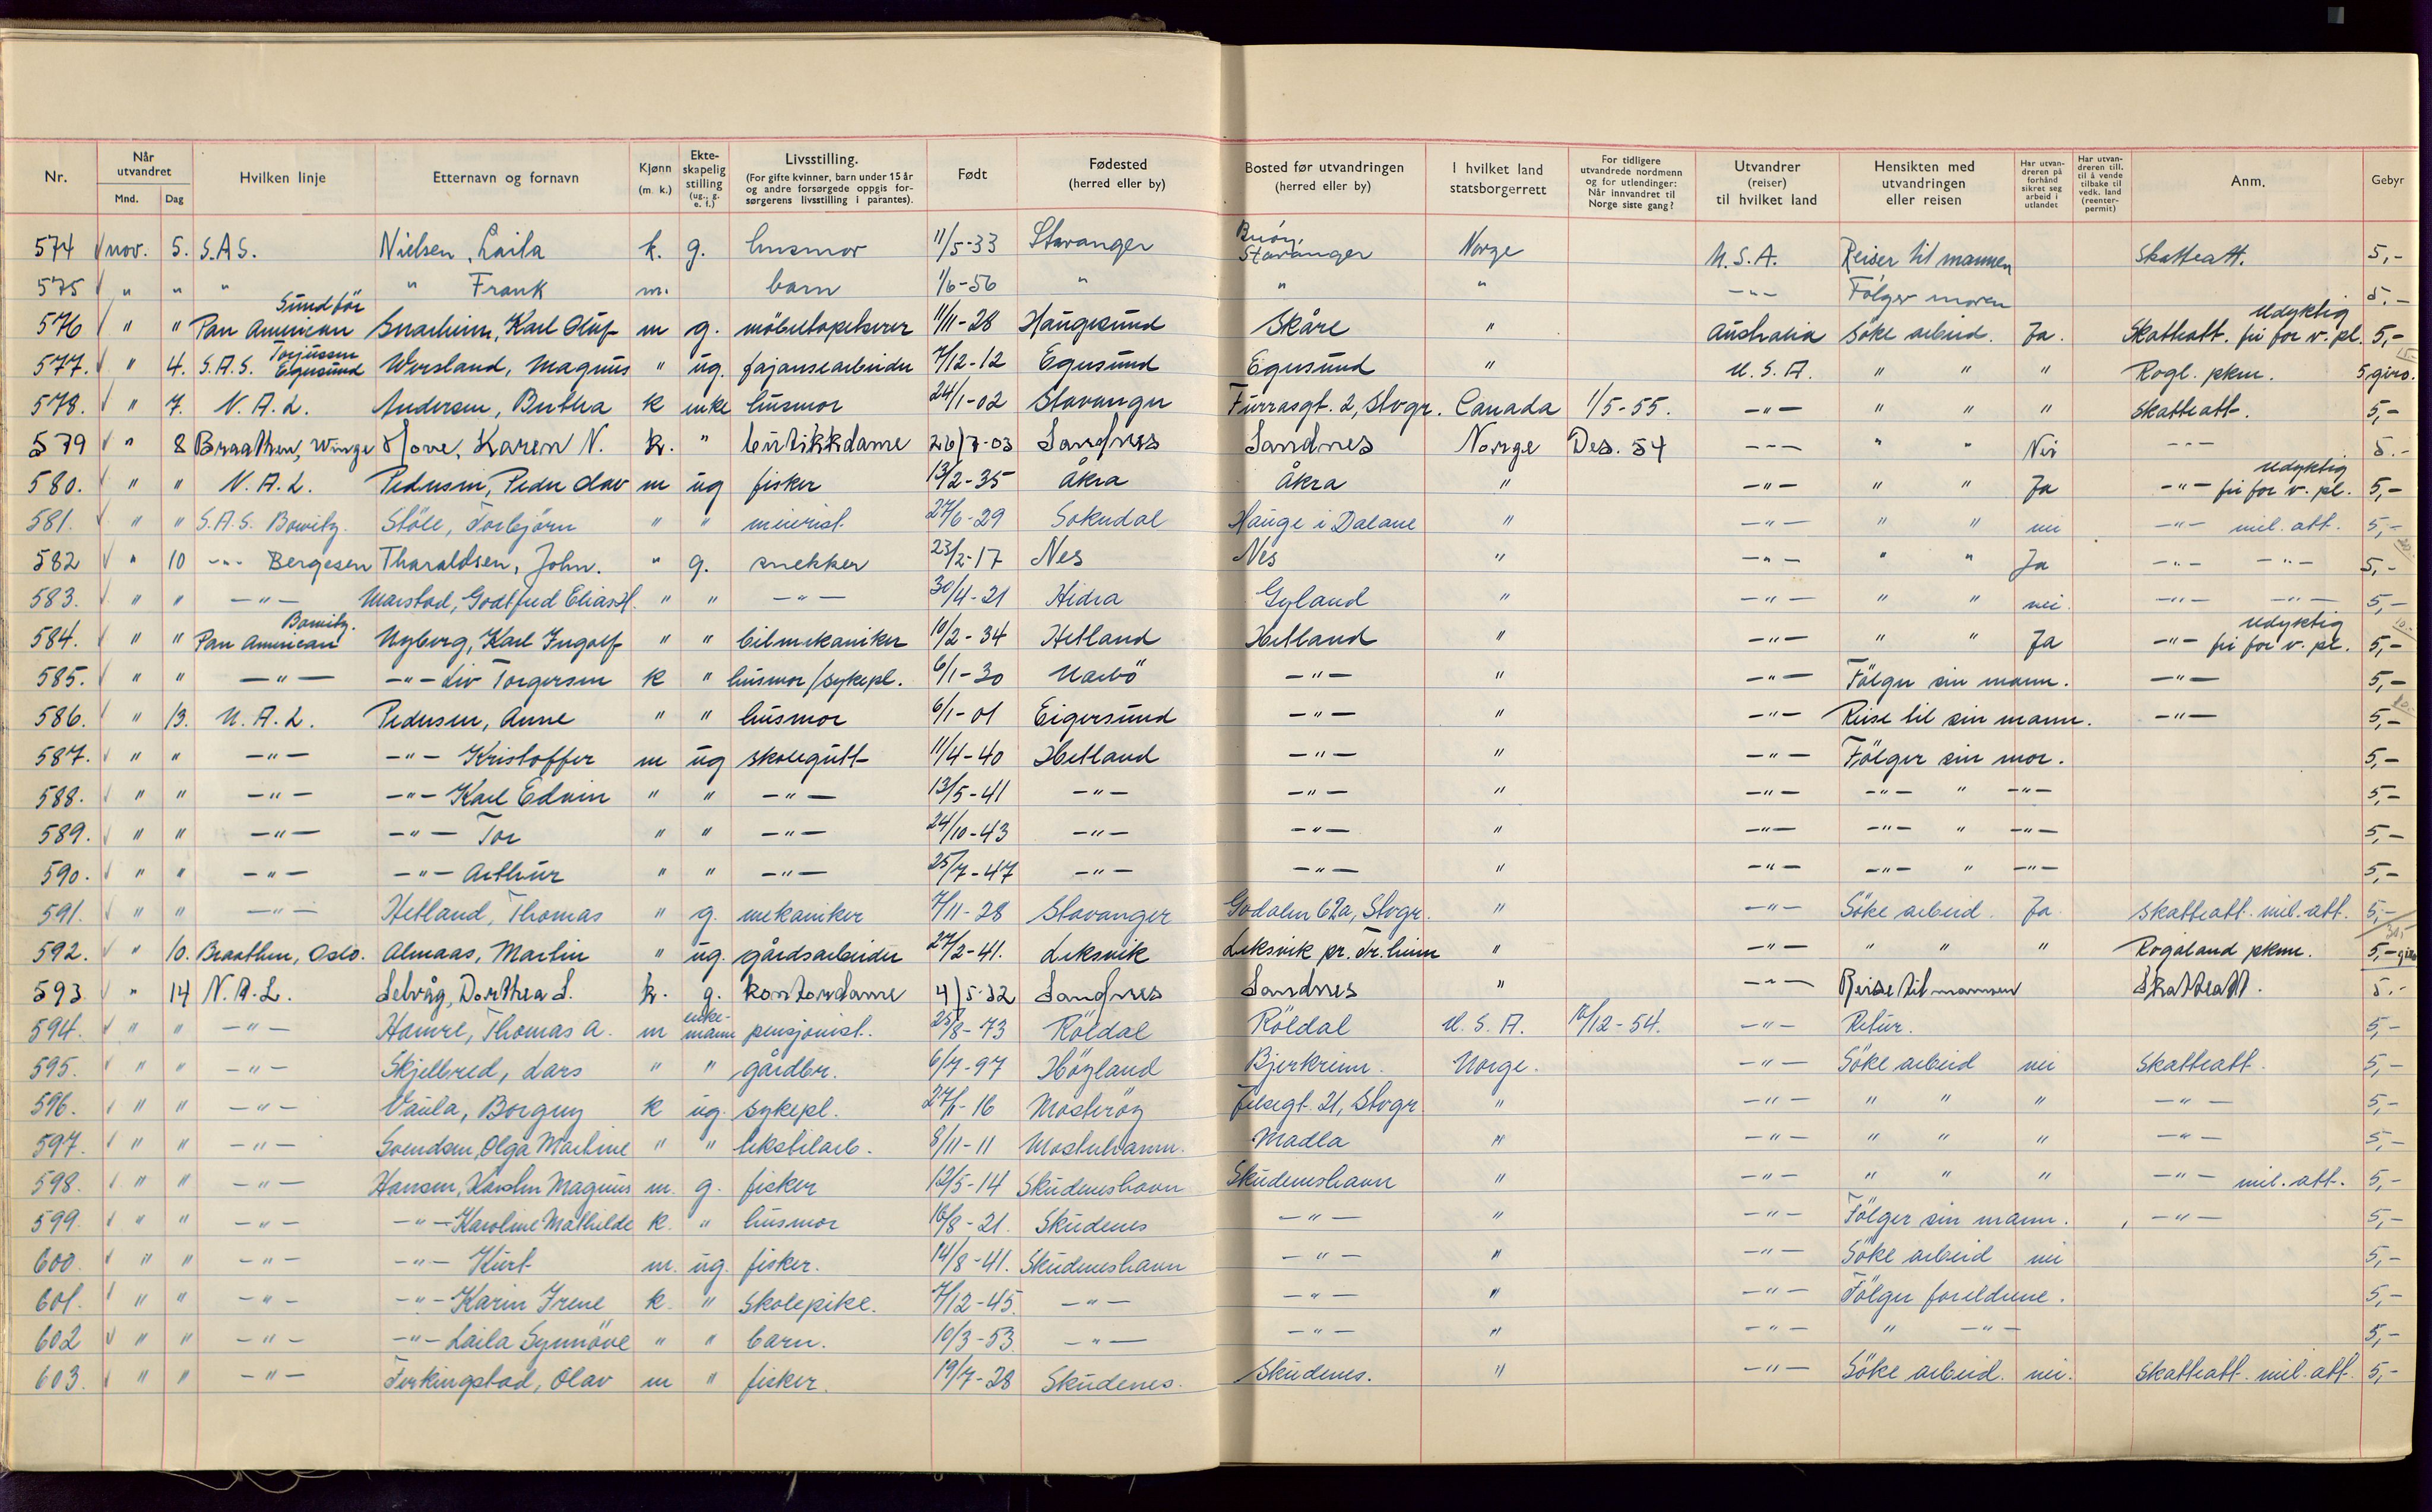 Nr. Når utvandret Mnd. Dag Hvilken linje Etternavn og fornavn Kjønn (m. k.) Ekte- skapelig stilling (ug., g. e. f.) Livsstilling. (For gifte kvinner, barn under 15 år og andre forsørgede oppgis for- sørgerens livsstilling i parantes). Født Fødested (herred eller by) Bosted før utvandringen (herred eller by) I hvilket land statsborgerrett For tidligere utvandrede nordmenn og for utlendinger: Når innvandret til Norge siste gang? Utvandrer (reiser) til hvilket land Hensikten med utvandringen eller reisen Har utvan- dreren på forhånd sikret seg arbeid i utlandet Har utvan- dreren till. til å vende tilbake til vedk. land (reenter- permit) Anm. Gebyr
574 nov. 5. S.A.S. Nielsen, Laila k. g. husmor 11/5-33 Stavanger Buøy, Stavanger Norge U.S.A. Reiser til mannen Skatteatt. 5,-
575 " " " " Frank m. barn 1/6-56 " " " -"- Følger moren 5.-
576 " " Pan American Sundför Snarheim, Karl Oluf m g. möbeltapetserer 11/11-28 Haugesund Skåre " Australia Söke arbeid. Ja. Skatteatt. Udyktig fri for v. pl. 5,-
577. " 4. S.A.S. Torjussen Egersund Wersland, Magnus " ug. fajansearbeider 7/12-12 Egersund Egersund " U.S.A. " " " Rogl. pkm. 5 giro.
578. " 7. N.A.L. Andersen, Bertha k enke husmor 24/1-02 Stavanger Furrasgt. 2, Stvgr. Canada 1/5-55. -"- " " " Skatteatt. 5,-
579 " 8 Braathen, Winge Hove, Karen N. k. " butikkdame 26/7-03 Sandnes Sandnes Norge Des. 54 -"- " " Nei -"- 5.-
580. " " N.A.L. Pedersen, Peder Olav m ug fisker 13/2-35 Åkra Åkra " -"- " " Ja -"- Udyktig fri for v. pl. 5,-
581. " " S.A.S. Bowitz. Stöle, Torbjörn " " meierist. 27/6-29 Sokndal Hauge i Dalane " -"- " " nei -"- mil. att. 5,-
582 " 10 -"- Bergesen Tharaldsen, John. " g. snekker 23/2-17 Nes Nes " -"- " " Ja -"- -"- 5,-
583. " " -"- Marstad, Godtfred Elias H. " " -"- 30/4-21 Hidra Gyland " -"- " " nei. -"- -"- 5,-
584. " " Pan American Bowitz. Nyberg, Karl Ingolf " " bilmekaniker 10/2-34 Hetland Hetland " -"- " " Ja -"- Udyktig fri for v. pl. 5,-
585. " " -"- -"- Liv Torgersen k " husmor/sykepl. 6/1-30 Nærbö -"- " -"- Fölger sin mann. -"- 5,-
586. " 13. N.A.L. Pedersen, Anne " " husmor 6/1-01 Eigersund -"- " -"- Reise til sin mann. -"- 5,-
587. " " -"- -"- Kristoffer m ug skolegutt 11/4-40 Hetland -"- " -"- Fölger sin mor. 5,-
588. " " -"- -"- Karl Edvin " " -"- 13/5-41 -"- -"- " -"- -"- " -"- 5,-
589. " " -"- -"- Tor " " -"- 24/10-43 -"- -"- " -"- -"- " -"- 5,-
590. " " -"- -"- Arthur " " -"- 25/7-47 -"- -"- " -"- -"- " -"- 5,-
591. " " -"- Hetland, Thomas " g. mekaniker 7/11-28 Stavanger Godalen 62a, Stvgr. " -"- Söke arbeid. Ja. Skatteatt. mil. att. 5,-
592. " 10. Braathen, Oslo. Almaas, Martin " ug. gårdsarbeider 27/2-41. Leksvik Leksvik pr. Tr.heim " -"- " " " Rogaland pkm. 5,- giro
593 " 14 N.A.L. Selvåg, Dorthea S. k. g. kontordame 4/5-32 Sandnes Sandnes " -"- Reise til mannen Skatteatt. 5.-
594. " " -"- Hamre, Thomas A. m enke- mann pensjonist. 25/8-73 Röldal Röldal U.S.A. 10/12-54. -"- Retur. 5,-
595. " " -"- Skjelbred, Lars " " gårdbr. 6/7-97 Höyland Bjerkreim. Norge. -"- Söke arbeid nei Skatteatt. 5,-
596. " " -"- Vaula, Borgny k ug. sykepl. 27/1-16 Mosteröy 21, Stvgr " -"- " " " -"- 5,-
597. " " -"- Svendsen, Olga Martine " " tekstilarb. 8/11-11 Mosterhamn. Madla " -"- " " " -"- 5,-
598. " " -"- Hansen, Karsten Magnus m. g. fisker 12/5-14 Skudeneshavn Skudeneshavn " -"- " " " -"- mil. att. 5,-
599. " " -"- -"- Karoline Mathilde k. " husmor 16/8-21. Skudenes -"- " -"- Fölger sin mann. -"- 5,-
600. " " -"- -"- Kurt m. ug. fisker. 14/8-41. Skudeneshavn -"- " -"- Söke arbeid nei 5,-
601. " " -"- -"- Karin Irene k. " Skolepike. 7/12-45. -"- -"- " -"- Fölger foreldrene. 5,-
602 " " -"- -"- Laila Synnöve " " barn. 10/3-53. -"- -"- " -"- " -"- 5,-
603. " " -"- Ferkingstad, Olav m " fisker. 19/7-28 Skudenes. Skudenes. " -"- Söke arbeid. nei. Skatteatt. mil. att. 5,-